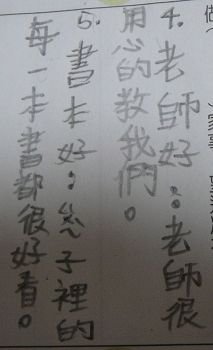 4. 老師好：老師很
用心的教我們。
5. 書本好：子裡的
每一本書都很好看。